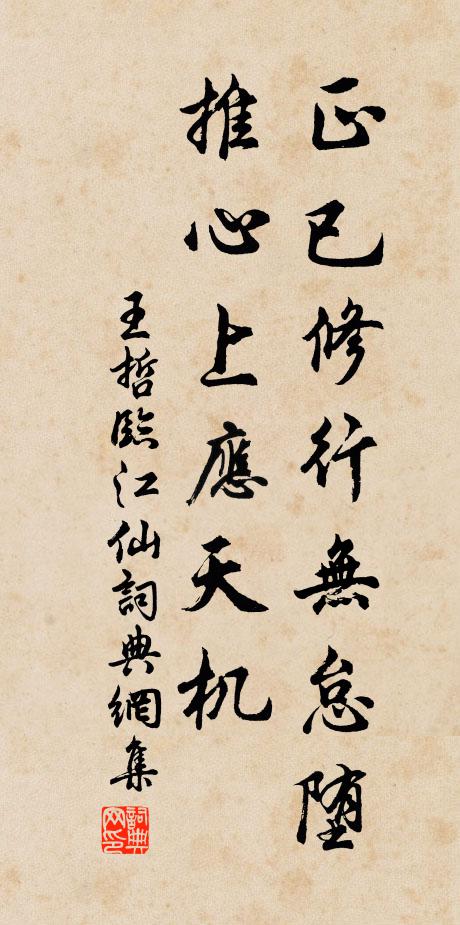 正己修行無怠堕
推心上應天机
王哲臨江仙詞典網集
詞典网印